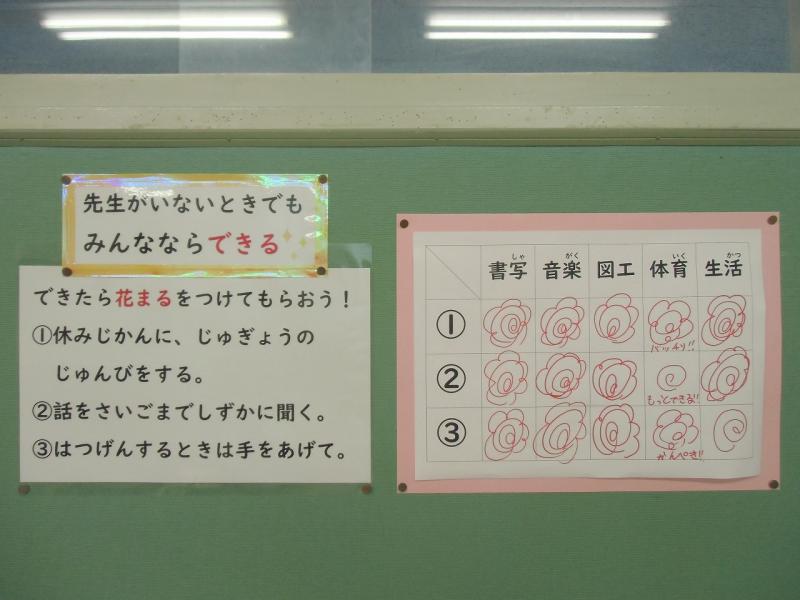 先生がいないときでも
みんなならできる
できたら花まるをつけてもらおう！
①休みじかんに、じゅぎょうの
じゅんびをする。
②話をさいごまでしずかに聞く。
③はつげんするときは手をあげて。
しゃ がく いく かつ
書写 音楽 図工 体育 生活
①
バッチリ!!
②
もっとできる!!
③
かんぺき!!